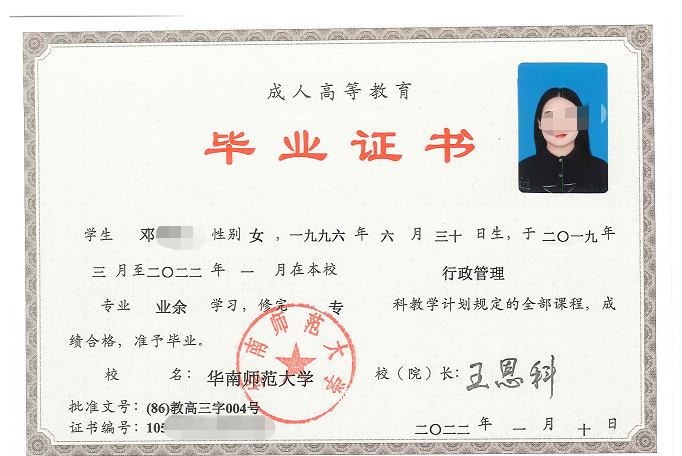 成人高等教育
毕业证书
学生 邓 性别 女 ，一九九六 年 六 月 三十 日生，于 二〇一九年
三 月至二〇二二 年 一 月在本校 行政管理
专业 业余 学习，修完 专 科教学计划规定的全部课程，成
绩合格，准予毕业。
校 名： 华南师范大学 校（院）长：王恩科
华南师范大学
批准文号：(86)教高三字004号
证书编号：105
二〇二二 年 一 月 十 日